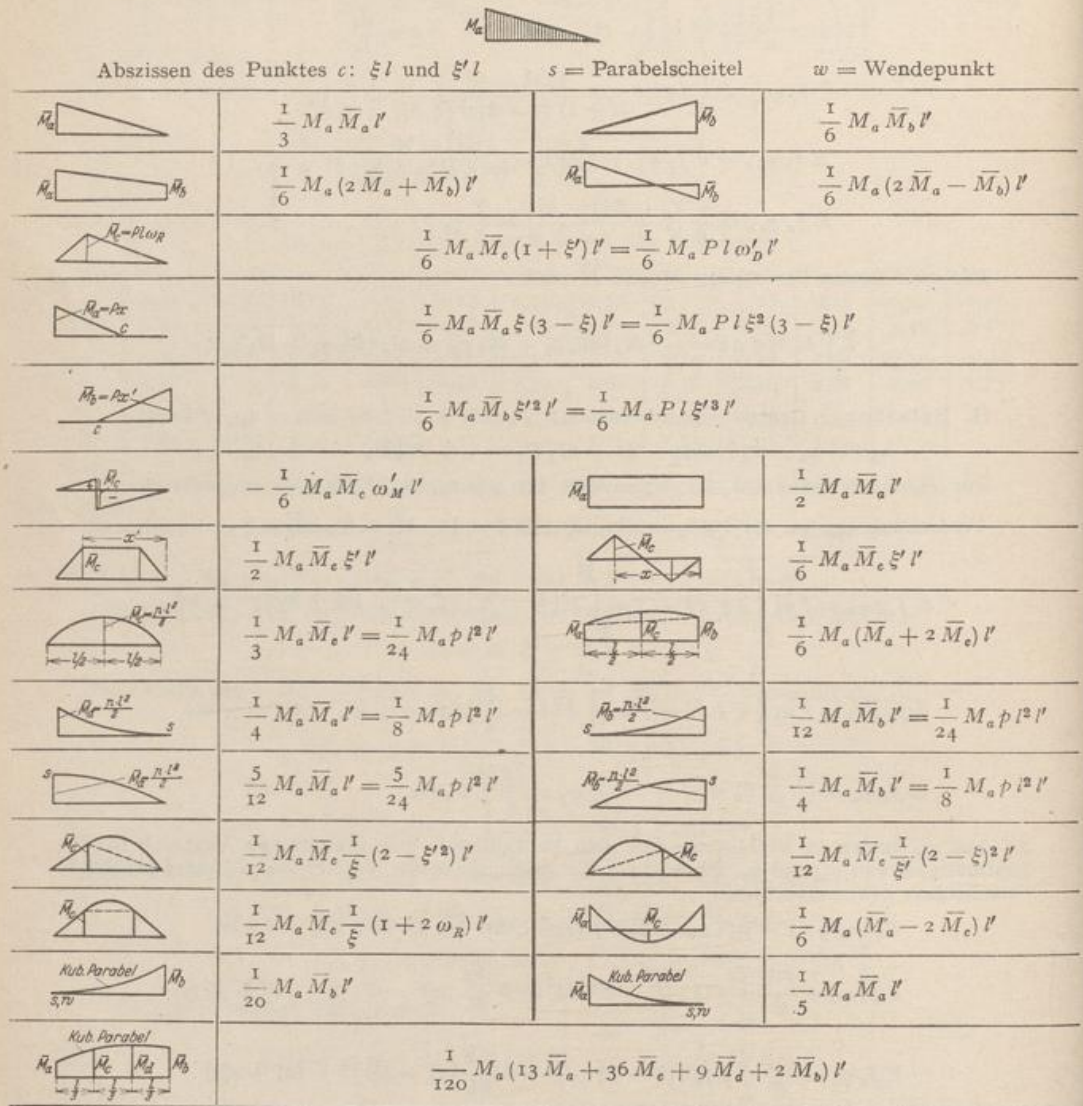 Mₐ
Abszissen des Punktes c: ξ l und ξ′ l s = Parabelscheitel w = Wendepunkt
M̄ₐ 1/3 Mₐ M̄ₐ l′ M̄_b 1/6 Mₐ M̄_b l′
M̄ₐ M̄_b 1/6 Mₐ (2 M̄ₐ + M̄_b) l′ M̄ₐ M̄_b 1/6 Mₐ (2 M̄ₐ − M̄_b) l′
M̄_c=Plω_R 1/6 Mₐ M̄_c (1 + ξ′) l′ = 1/6 Mₐ P l ω′_D l′
M̄ₐ=Px c 1/6 Mₐ M̄ₐ ξ (3 − ξ) l′ = 1/6 Mₐ P l ξ² (3 − ξ) l′
M̄_b=Px′ c 1/6 Mₐ M̄_b ξ′² l′ = 1/6 Mₐ P l ξ′³ l′
M̄_c + − − 1/6 Mₐ M̄_c ω′_M l′ M̄ₐ 1/2 Mₐ M̄ₐ l′
x′ M̄_c 1/2 Mₐ M̄_c ξ′ l′ M̄_c x 1/6 Mₐ M̄_c ξ′ l′
M̄_c=p·l²/8 l/2 l/2 1/3 Mₐ M̄_c l′ = 1/24 Mₐ p l² l′ M̄ₐ M̄_c M̄_b l/2 l/2 1/6 Mₐ (M̄ₐ + 2 M̄_c) l′
M̄ₐ=p·l²/2 s 1/4 Mₐ M̄ₐ l′ = 1/8 Mₐ p l² l′ M̄_b=p·l²/2 s 1/12 Mₐ M̄_b l′ = 1/24 Mₐ p l² l′
s M̄ₐ=p·l²/2 5/12 Mₐ M̄ₐ l′ = 5/24 Mₐ p l² l′ M̄_b=p·l²/2 s 1/4 Mₐ M̄_b l′ = 1/8 Mₐ p l² l′
M̄_c 1/12 Mₐ M̄_c 1/ξ (2 − ξ′²) l′ M̄_c 1/12 Mₐ M̄_c 1/ξ′ (2 − ξ)² l′
M̄_c 1/12 Mₐ M̄_c 1/ξ (1 + 2 ω_R) l′ M̄ₐ M̄_c 1/6 Mₐ (M̄ₐ − 2 M̄_c) l′
Kub. Parabel s,w M̄_b 1/20 Mₐ M̄_b l′ M̄ₐ Kub. Parabel s,w 1/5 Mₐ M̄ₐ l′
Kub. Parabel M̄ₐ M̄_c M̄_d M̄_b l/3 l/3 l/3 1/120 Mₐ (13 M̄ₐ + 36 M̄_c + 9 M̄_d + 2 M̄_b) l′